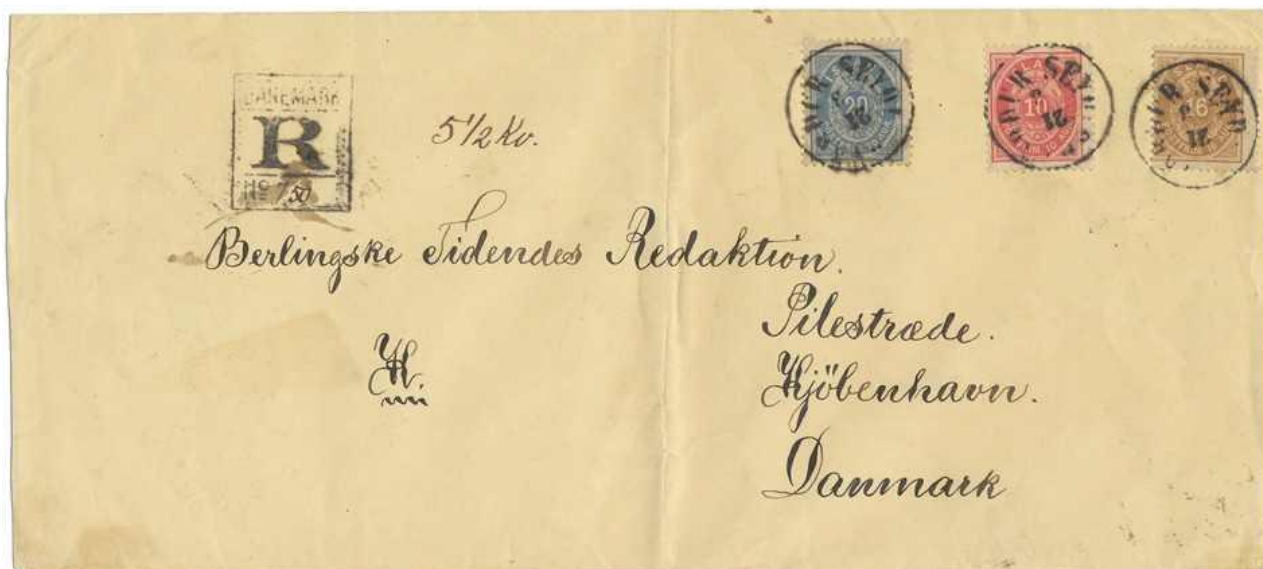 DANEMARK
R
5 1/2 Kv.
20
10
16
21
21
21
Berlingske Tidendes Redaktion.
Pilestræde.
K.
Kjöbenhavn.
Danmark